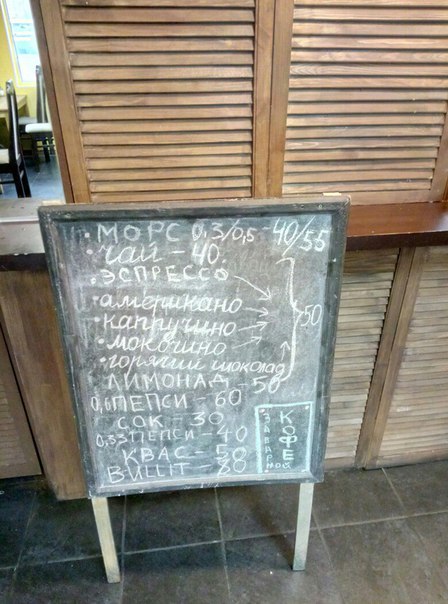 • МОРС 0,3/0,5 - 40/55
• чай - 40.
• ЭСПРЕССО
• американо
• каппучино
• мокочино
• горячий шоколад
50
ЛИМОНАД - 50
0,6 ПЕПСИ - 60
СОК - 30
0,33 ПЕПСИ - 40
КВАС - 50
BULLIT - 80
КОФЕ
ЗАВАРНОЙ